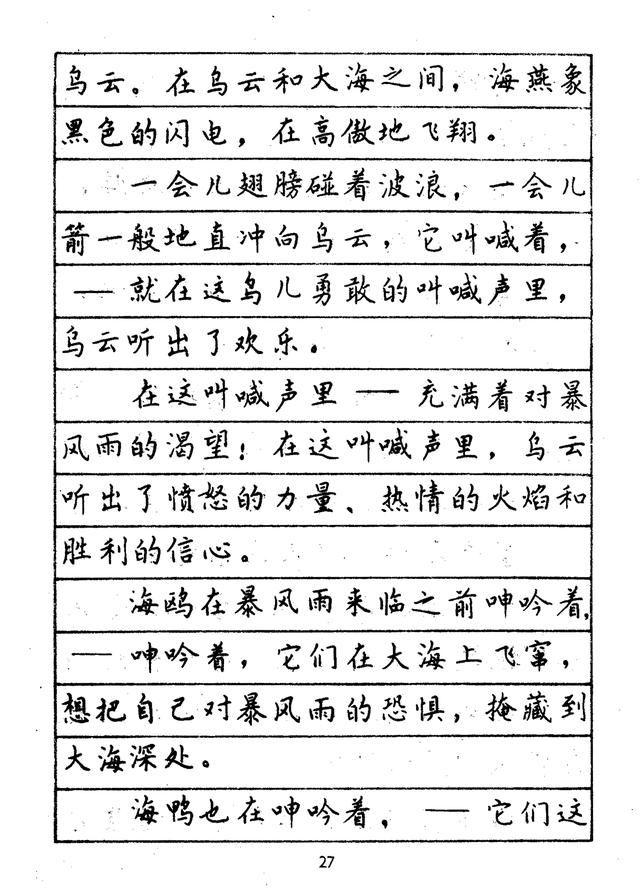 乌云。在乌云和大海之间，海燕象
黑色的闪电，在高傲地飞翔。
一会儿翅膀碰着波浪，一会儿
箭一般地直冲向乌云，它叫喊着，
—就在这鸟儿勇敢的叫喊声里，
乌云听出了欢乐。
在这叫喊声里—充满着对暴
风雨的渴望！在这叫喊声里，乌云
听出了愤怒的力量、热情的火焰和
胜利的信心。
海鸥在暴风雨来临之前呻吟着，
—呻吟着，它们在大海上飞窜，
想把自己对暴风雨的恐惧，掩藏到
大海深处。
海鸭也在呻吟着，—它们这
27